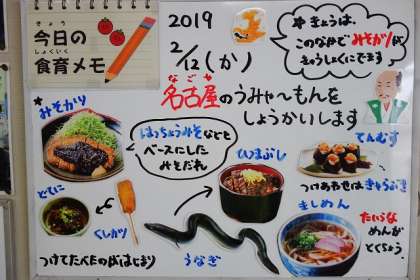 きょう
今日の
しょくいく
食育メモ
2019
2/12(か)
*きょうは、
このなかで みそカツが
きゅうしょくにでます
なごや
名古屋のうみゃ〜もんを
しょうかいします
*みそカツ
はっちょうみそなどを
ベースにした
みそだれ
ひつまぶし
てんむす
つけあわせはきゃらぶき
どてに
くしカツ
つけてたべたのがはじまり
うなぎ
きしめん
たいらな
めんが
とくちょう